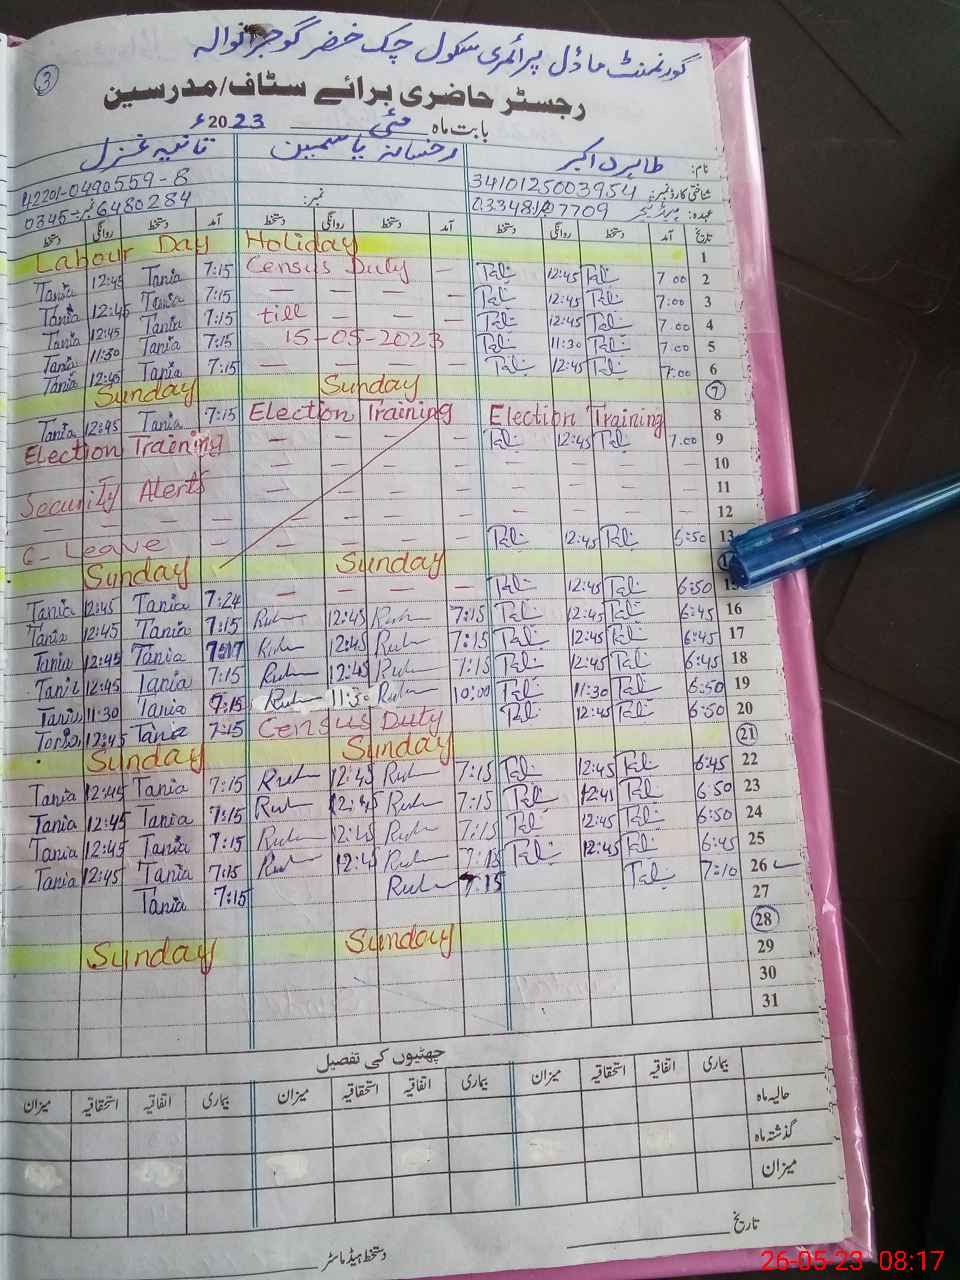 3
گورنمنٹ ماڈل پرائمری سکول چک خضر گوجرانوالہ
رجسٹر حاضری برائے سٹاف/مدرسین
بابت ماہ مئی 2023ء
نام: طاہرہ اکبر رخسانہ یاسمین ثانیہ غزل
شناختی کارڈ نمبر: 3410125003954 42201-0490559-8
عہدہ: نمبر: نمبر: 0345-6480284
تاریخ آمد دستخط روانگی دستخط آمد دستخط روانگی دستخط آمد دستخط روانگی دستخط
1 Labour Day Holiday
2 7:00 12:45 Census Duly — 7:15 Tania 12:45 Tania
3 7:00 12:45 — — — — 7:15 Tania 12:45 Tania
4 7:00 12:45 till — — — 7:15 Tania 12:45 Tania
5 7:00 11:30 15-05-2023 7:15 Tania 11:30 Tania
6 7:00 12:45 — — — — 7:15 Tania 12:45 Tania
7 Sunday Sunday
8 Election Training Election Training 7:15 Tania 12:45 Tania
9 7:00 12:45 — — — — Election Training
10 — — — — — — — —
11 — — — — — — — — Security Alerts
12 — — — — — — — — — — — —
13 6:50 12:45 — — — — — C-Leave
Sunday Sunday
15 6:50 12:45 — — — — 7:24 Tania 12:45 Tania
16 6:45 12:45 7:15 Ruh 12:45 Ruh 7:15 Tania 12:45 Tania
17 6:45 12:45 7:15 Ruh 12:45 Ruh 7:17 Tania 12:45 Tania
18 6:45 12:45 7:15 Ruh 12:45 Ruh 7:15 Tania 12:45 Tania
19 6:50 11:30 10:00 Ruh 11:30 Ruh 7:15 Tania 11:30 Tania
20 6:50 12:45 Census Duty 7:15 Tania 12:45 Tania
21 Sunday Sunday
22 6:45 12:45 7:15 Ruh 12:45 Ruh 7:15 Tania 12:45 Tania
23 6:50 12:41 7:15 Ruh 12:45 Ruh 7:15 Tania 12:45 Tania
24 6:50 12:45 7:15 Ruh 12:45 Ruh 7:15 Tania 12:45 Tania
25 6:45 12:45 7:15 Ruh 12:4 Ruh 7:15 Tania 12:45 Tania
26 7:10 7:15 Ruh 7:15 Tania
27
28 Sunday Sunday
29
30
31
چھٹیوں کی تفصیل
بیماری اتفاقیہ استحقاقیہ میزان بیماری اتفاقیہ استحقاقیہ میزان بیماری اتفاقیہ استحقاقیہ میزان
حالیہ ماہ
گذشتہ ماہ
میزان
تاریخ
دستخط ہیڈ ماسٹر
26-05-23 08:17